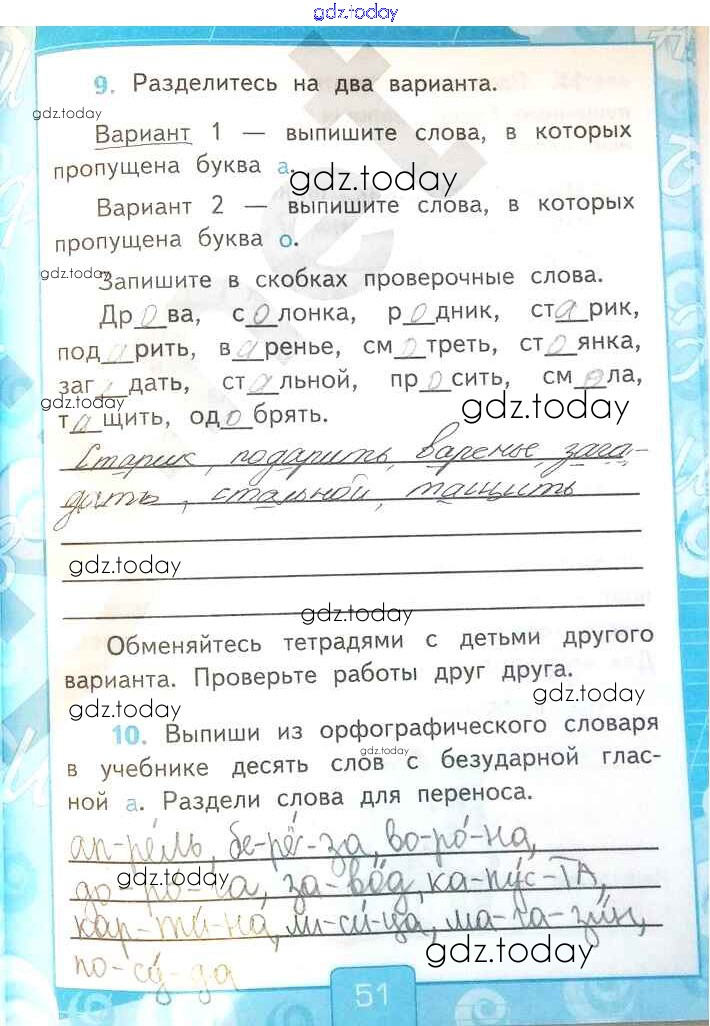 gdz.today
9. Разделитесь на два варианта.
gdz.today
Вариант 1 — выпишите слова, в которых
пропущена буква а.
gdz.today
Вариант 2 — выпишите слова, в которых
пропущена буква о.
gdz.today
Запишите в скобках проверочные слова.
Дрова, солонка, родник, старик,
подарить, варенье, смотреть, стоянка,
загадать, стальной, просить, смола,
gdz.today
gdz.today
тащить, одобрять.
Старик, подарить, варенье, зага-
дать, стальной, тащить
gdz.today
gdz.today
Обменяйтесь тетрадями с детьми другого
варианта. Проверьте работы друг друга.
gdz.today
gdz.today
10. Выпиши из орфографического словаря
gdz.today
в учебнике десять слов с безударной глас-
ной а. Раздели слова для переноса.
ап-ре́ль, бе-рё-за, во-ро́-на,
до-ро́-га, за-во́д, ка-пу́с-та,
gdz.today
кар-ти́-на, ли-си́-ца, ма-га-зи́н,
gdz.today
по-су́-да
51